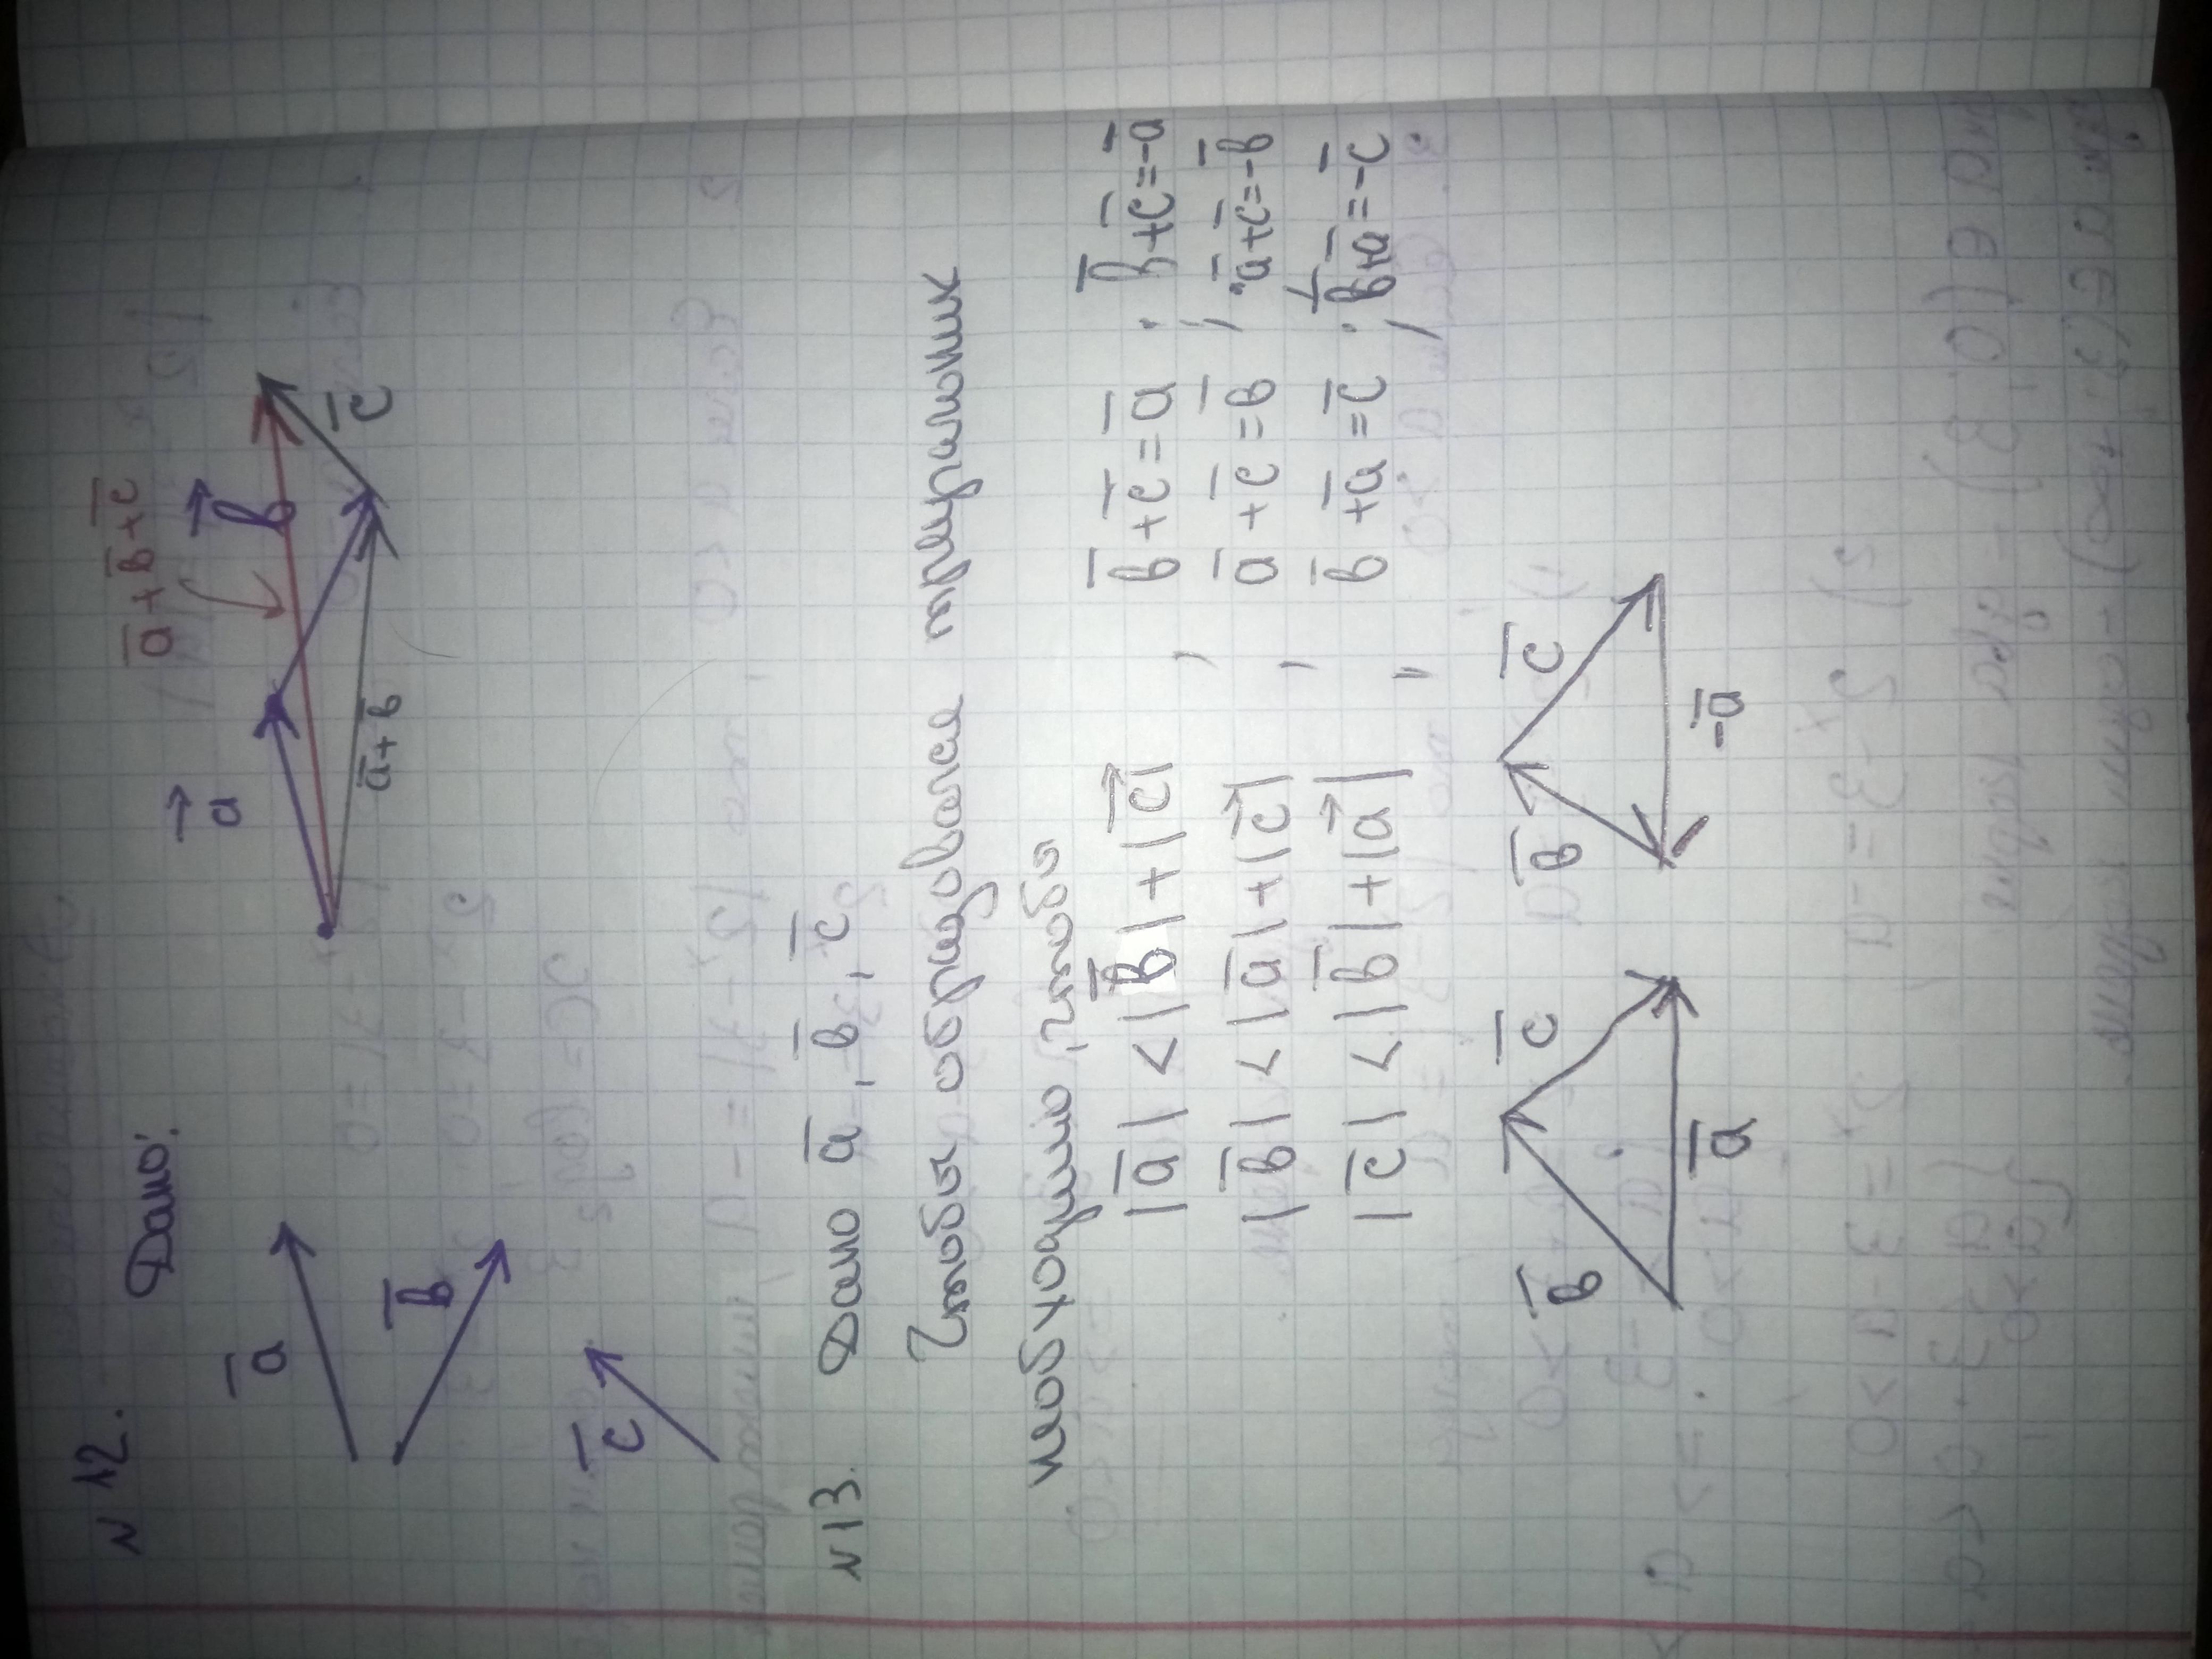 N 12. Дано:
a̅
b̅
c̅
a⃗
b⃗
a̅+b̅
c̅
a̅+b̅+c̅
N 13. Дано a̅, b̅, c̅
Чтобы образовался треугольник
необходимо, чтобы
|a̅| < |b̅| + |c⃗| , b̅+c̅=a̅ ; b̅+c̅=-a̅
|b̅| < |a̅| + |c⃗| , a̅+c̅=b̅ ; a̅+c̅=-b̅
|c̅| < |b̅| + |a⃗| , b̅+a̅=c̅ ; b̅+a̅=-c̅
b̅ c̅ b̅ c̅
a̅ -a̅